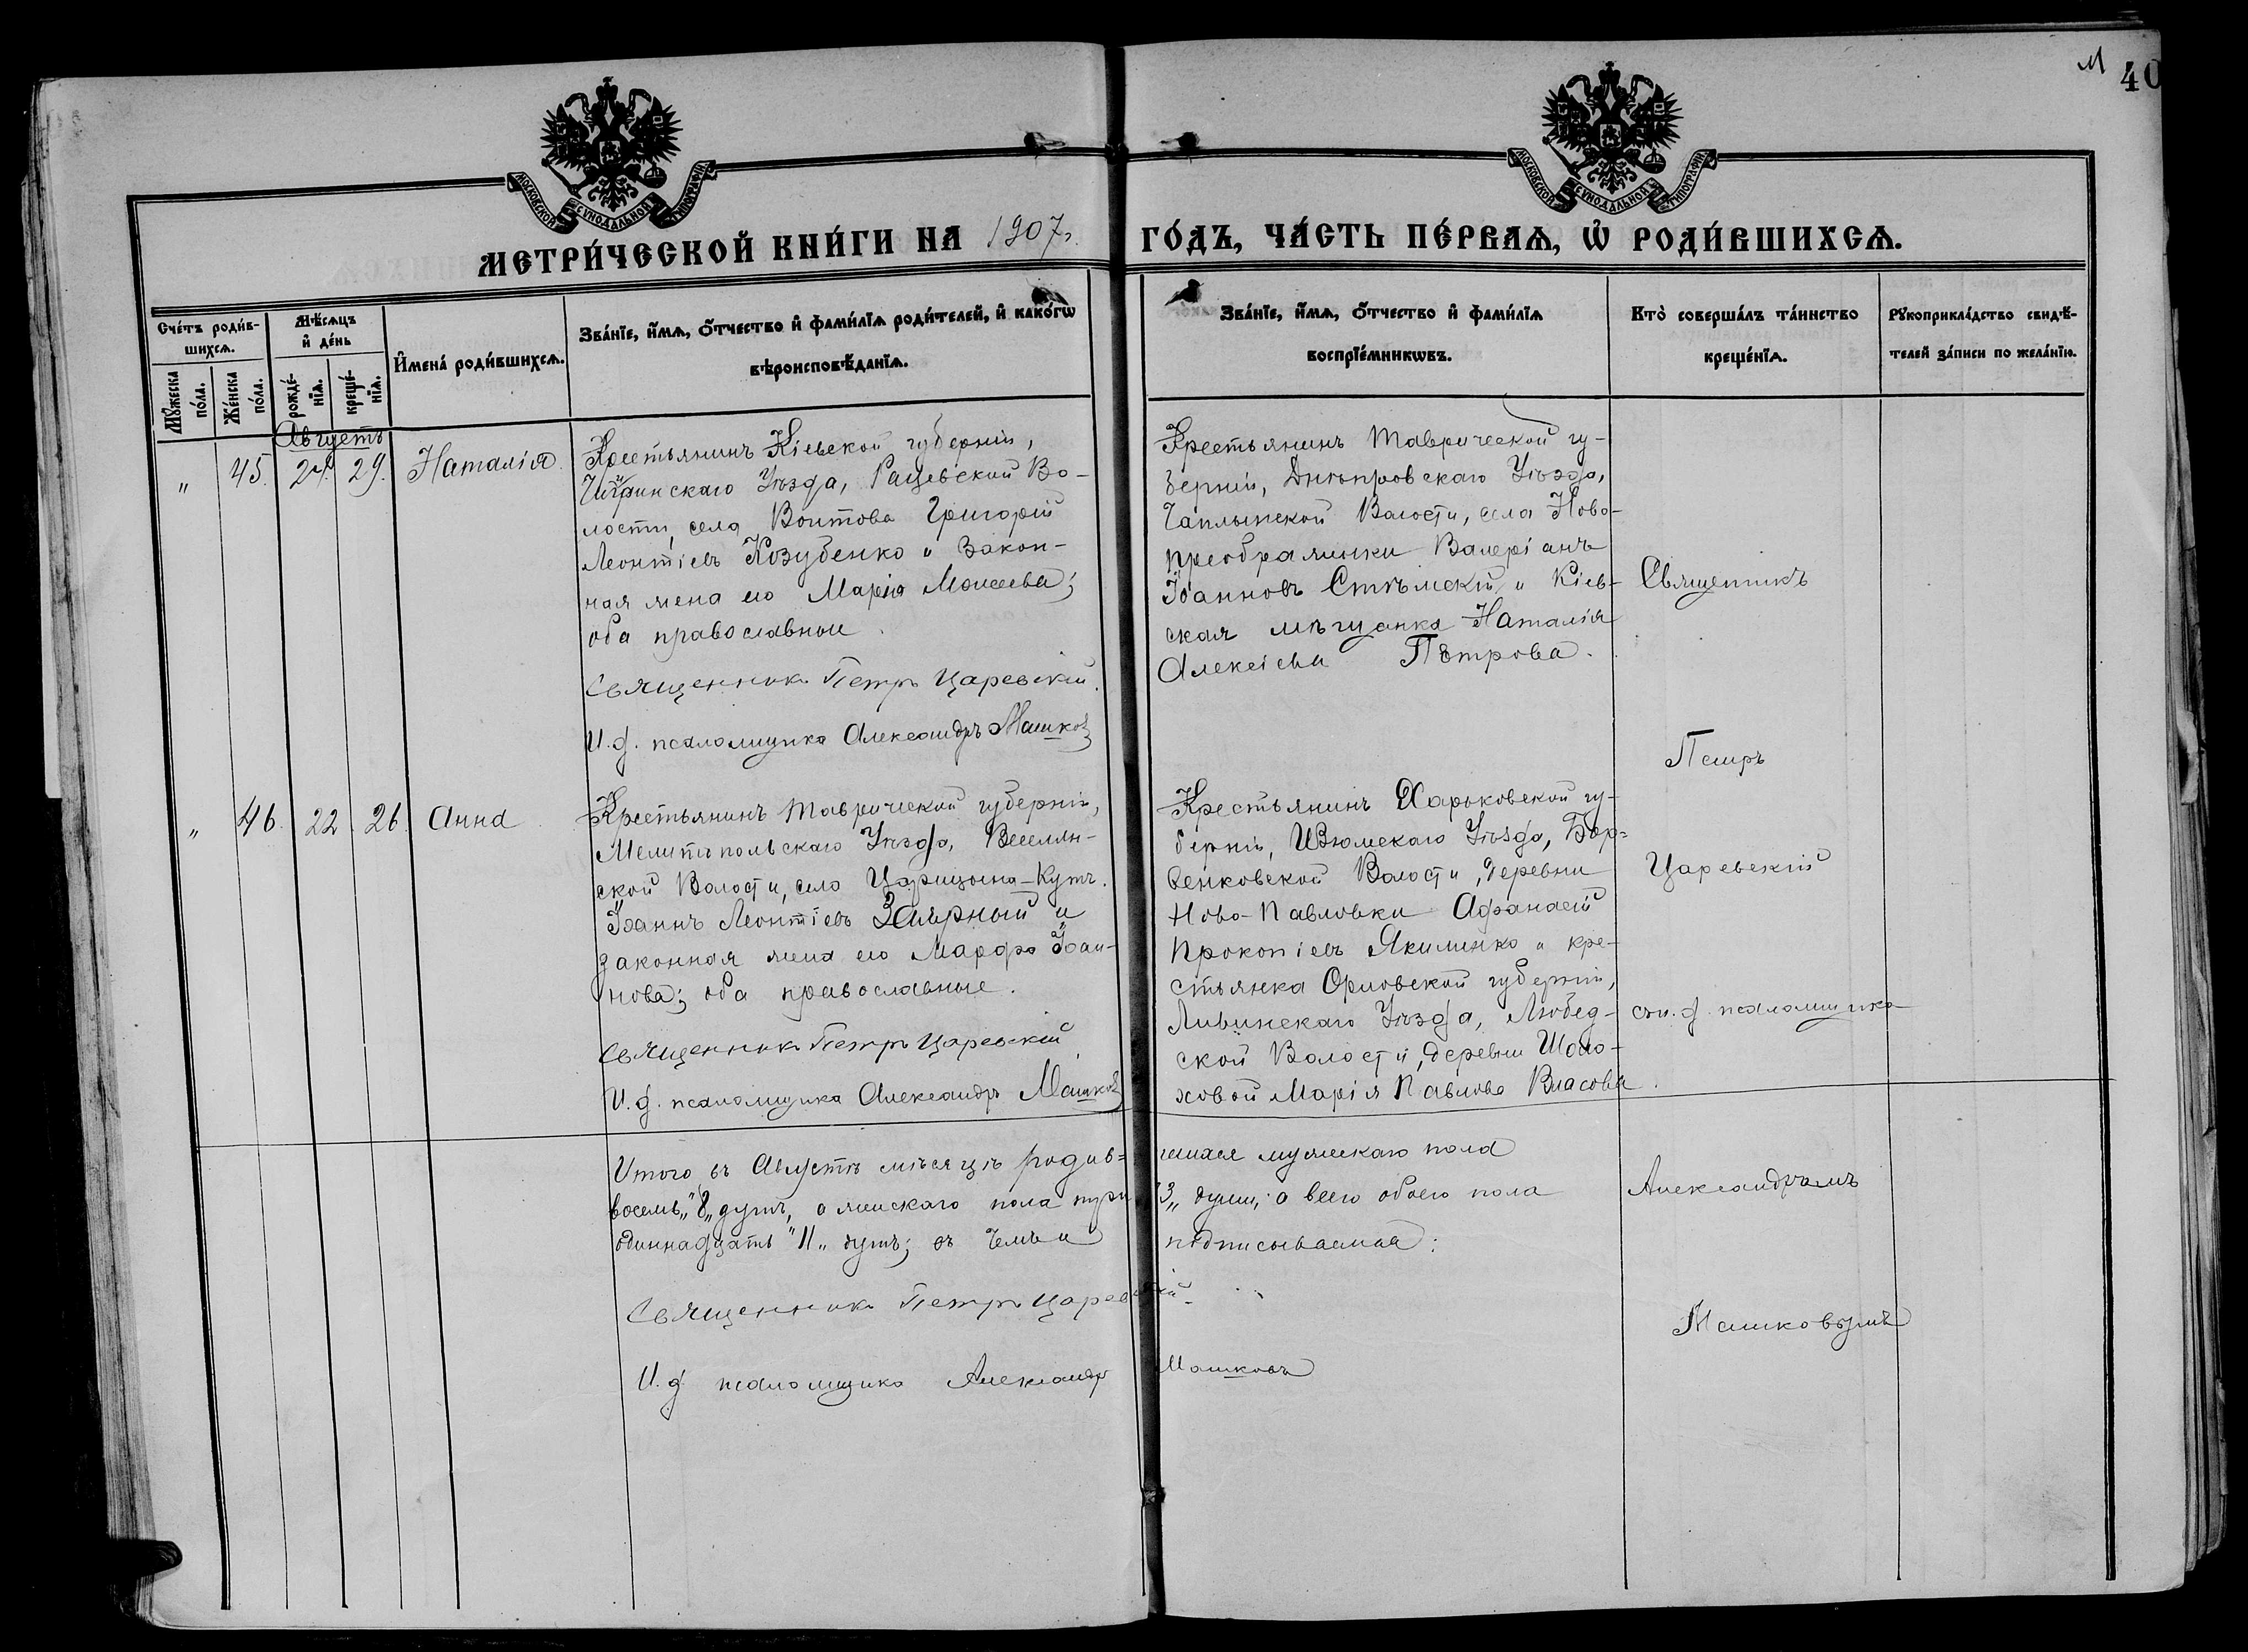 М 40
МОСКОВСКОЙ СѴНОДАЛЬНОЙ ТИПОГРАФІИ
МОСКОВСКОЙ СѴНОДАЛЬНОЙ ТИПОГРАФІИ
МЕТРИ́ЧЕСКОЙ КНИ́ГИ НА 1907 г.
ГО́ДЪ, ЧА́СТЬ ПЕ́РВАѦ, Ѡ҆ РОДИ́ВШИХСѦ.
Сче́тъ роди́в-
шихсѧ.
Мꙋ́жеска
по́ла.
Же́нска
по́ла.
Мѣ́сѧцъ
и҆ де́нь
рожде́-
нїѧ.
креще́-
нїѧ.
И҆мена́ роди́вшихсѧ.
Зва́нїе, и҆́мѧ, ѻ҆́тчество и҆ фами́лїѧ роди́телей, и҆ како́гѡ
вѣроисповѣ́данїѧ.
Зва́нїе, и҆́мѧ, ѻ҆́тчество и҆ фами́лїѧ
воспрїе́мникѡвъ.
Кто̀ соверша́лъ та́инство
креще́нїѧ.
Рꙋкоприкла́дство свидѣ́-
телей за́писи по жела́нїю.
Августъ
" 45. 24. 29. Наталія
Крестьянинъ Кіевской губерніи,
Чигринскаго Уѣзда, Рацевской Во-
лости, села Воитова Григорій
Леонтіевъ Козубенко и закон-
ная жена его Марія Моисеева;
оба православные
Священникъ Петръ Царевскій.
И. д. псаломщика Александръ Машковъ
Крестьянинъ Таврической гу-
берніи, Днѣпровскаго Уѣзда,
Чаплынской Волости, села Ново-
преображенки Валеріанъ
Іоанновъ Стѣмскій и Кіев-
ская мѣщанка Наталія
Алексіева Пѣтрова.
Священникъ
Петръ
Царевскій
съ и. д. псаломщика
Александромъ
Машковымъ
" 46. 22 26. Анна
Крестьянинъ Таврической губерніи,
Мелитопольскаго Уѣзда, Веселян-
ской Волости, село Царицына-Кутъ.
Іоаннъ Леонтіевъ Заирный и
законная жена его Марфа Іоан-
нова; оба православные.
Священникъ Петръ Царевскій
И. д. псаломщика Александръ Машковъ
Крестьянинъ Харьковской гу-
берніи, Изюмскаго Уѣзда, Бар-
венковской Волости, деревни
Ново-Павловки Афанасій
Прокопіевъ Якименко и кре-
стьянка Орловской губерніи,
Ливинскаго Уѣзда, Любед-
ской Волости, деревни Шоло-
ховой Марія Павлова Власова.
Итого въ Августѣ мѣсяцѣ родив-
шихся мужескаго пола
восемь "8" душъ, а женскаго пола три
"3" души; а всего обоего пола
одиннадцать "11" душъ; въ чемъ и
подписываемся:
Священникъ Петръ Царевскій.
И. д. псаломщика Александръ Машковъ